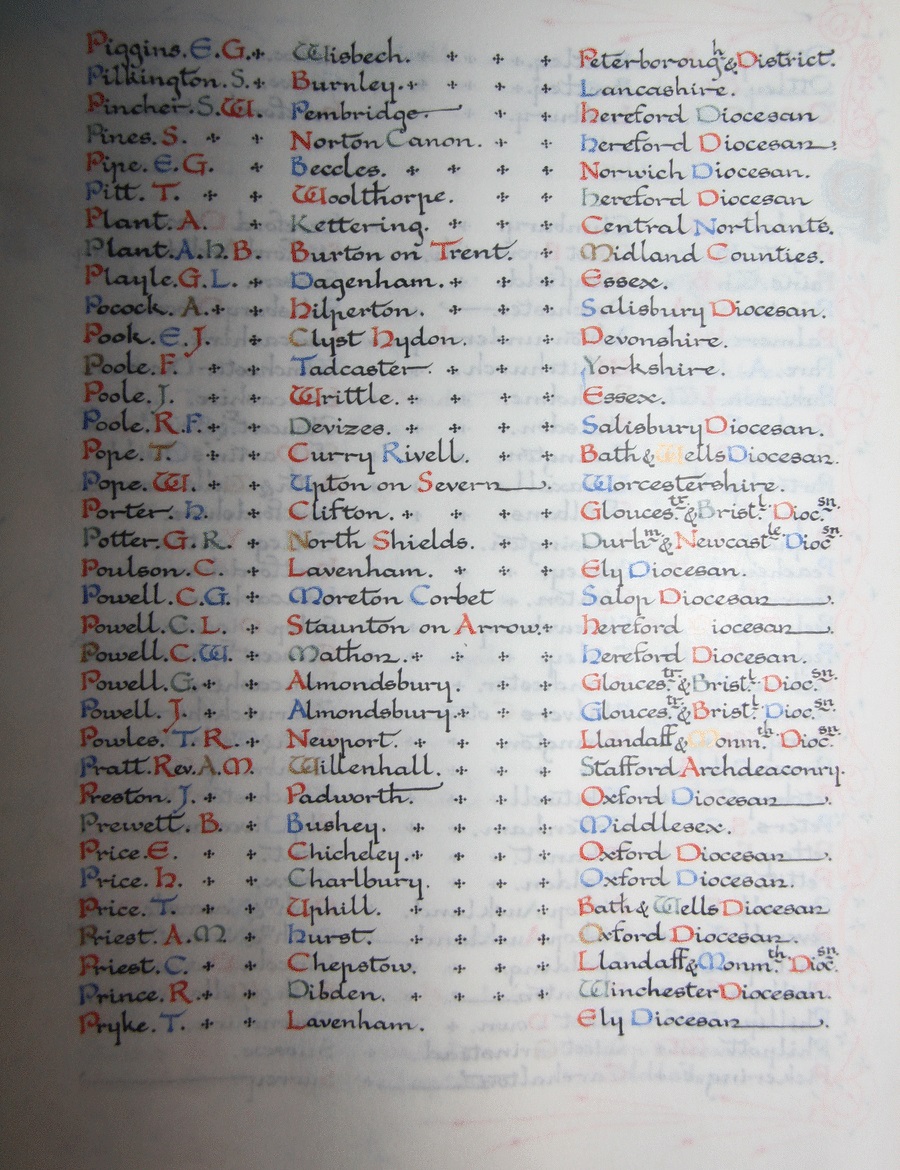 Piggins. E. G. + Wisbech. + + + Peterborough & District.
Pilkington. S. + Burnley. + + + Lancashire.
Pincher. S. W. Pembridge. + + Hereford Diocesan
Pines. S. + + Norton Canon. + + Hereford Diocesan.
Pipe. E. G. + Beccles. + + + + Norwich Diocesan.
Pitt. T. + + Woolthorpe. + + + Hereford Diocesan
Plant. A. + Kettering. + + + Central Northants.
Plant. A. H. B. Burton on Trent. + Midland Counties.
Playle. G. L. + Dagenham. + + + Essex.
Pocock. A. + + Hilperton. + + + Salisbury Diocesan.
Pook. E. J. + Clyst Hydon. + + Devonshire.
Poole. F. + + Tadcaster. + + + Yorkshire.
Poole. J. + + Writtle. + + + + Essex.
Poole. R. F. + + Devizes. + + + + Salisbury Diocesan.
Pope. T. + + Curry Rivell. + + Bath & Wells Diocesan.
Pope. W. + + Upton on Severn. Worcestershire.
Porter. H. + Clifton. + + + + Gloucestr. & Bristl. Diocsn.
Potter. G. R. + North Shields. + + Durhm & Newcastle Diocsn.
Poulson. C. + Lavenham. + + + Ely Diocesan.
Powell. C. G. + Moreton Corbet Salop Diocesan.
Powell. C. L. + Staunton on Arrow. + Hereford iocesan.
Powell. C. W. + Mathon. + + + + Hereford Diocesan.
Powell. G. + + Almondsbury. + + Gloucestr. & Bristl. Diocsn.
Powell. J. + + Almondsbury. + + + Gloucestr. & Bristl. Diocsn.
Powles. T. R. + Newport. + + + + Llandaff & Monmth. Diocsn.
Pratt. Rev. A. M. Willenhall. + + + Stafford Archdeaconry.
Preston. J. + + Padworth. + + + Oxford Diocesan.
Prewett. B. + Bushey. + + + + Middlesex.
Price. E. + + Chicheley. + + + + Oxford Diocesan.
Price. H. + + Charlbury. + + + Oxford Diocesan.
Price. T. + + Uphill. + + + + Bath & Wells Diocesan
Priest. A. M. + Hurst. + + + + Oxford Diocesan.
Priest. C. + + Chepstow. + + + Llandaff & Monmth. Diocsn.
Prince. R. + + Dibden. + + + + Winchester Diocesan.
Pryke. T. + + Lavenham. + + + Ely Diocesan.